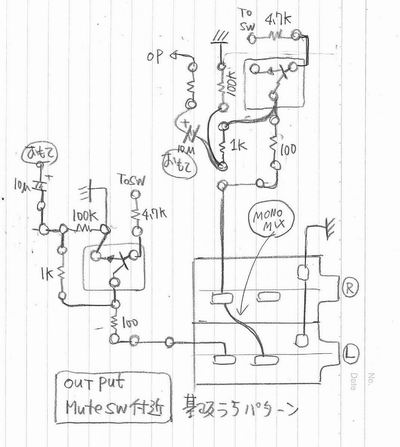 TO
SW
4.7K
OP
100K
+
10μ
おもて
1K
100
おもて
10μ
+
TOSW
100K
4.7K
1K
100
MONO
MIX
R
L
OUTPUT
MuteSW付近
基板うらパターン
No.
Date